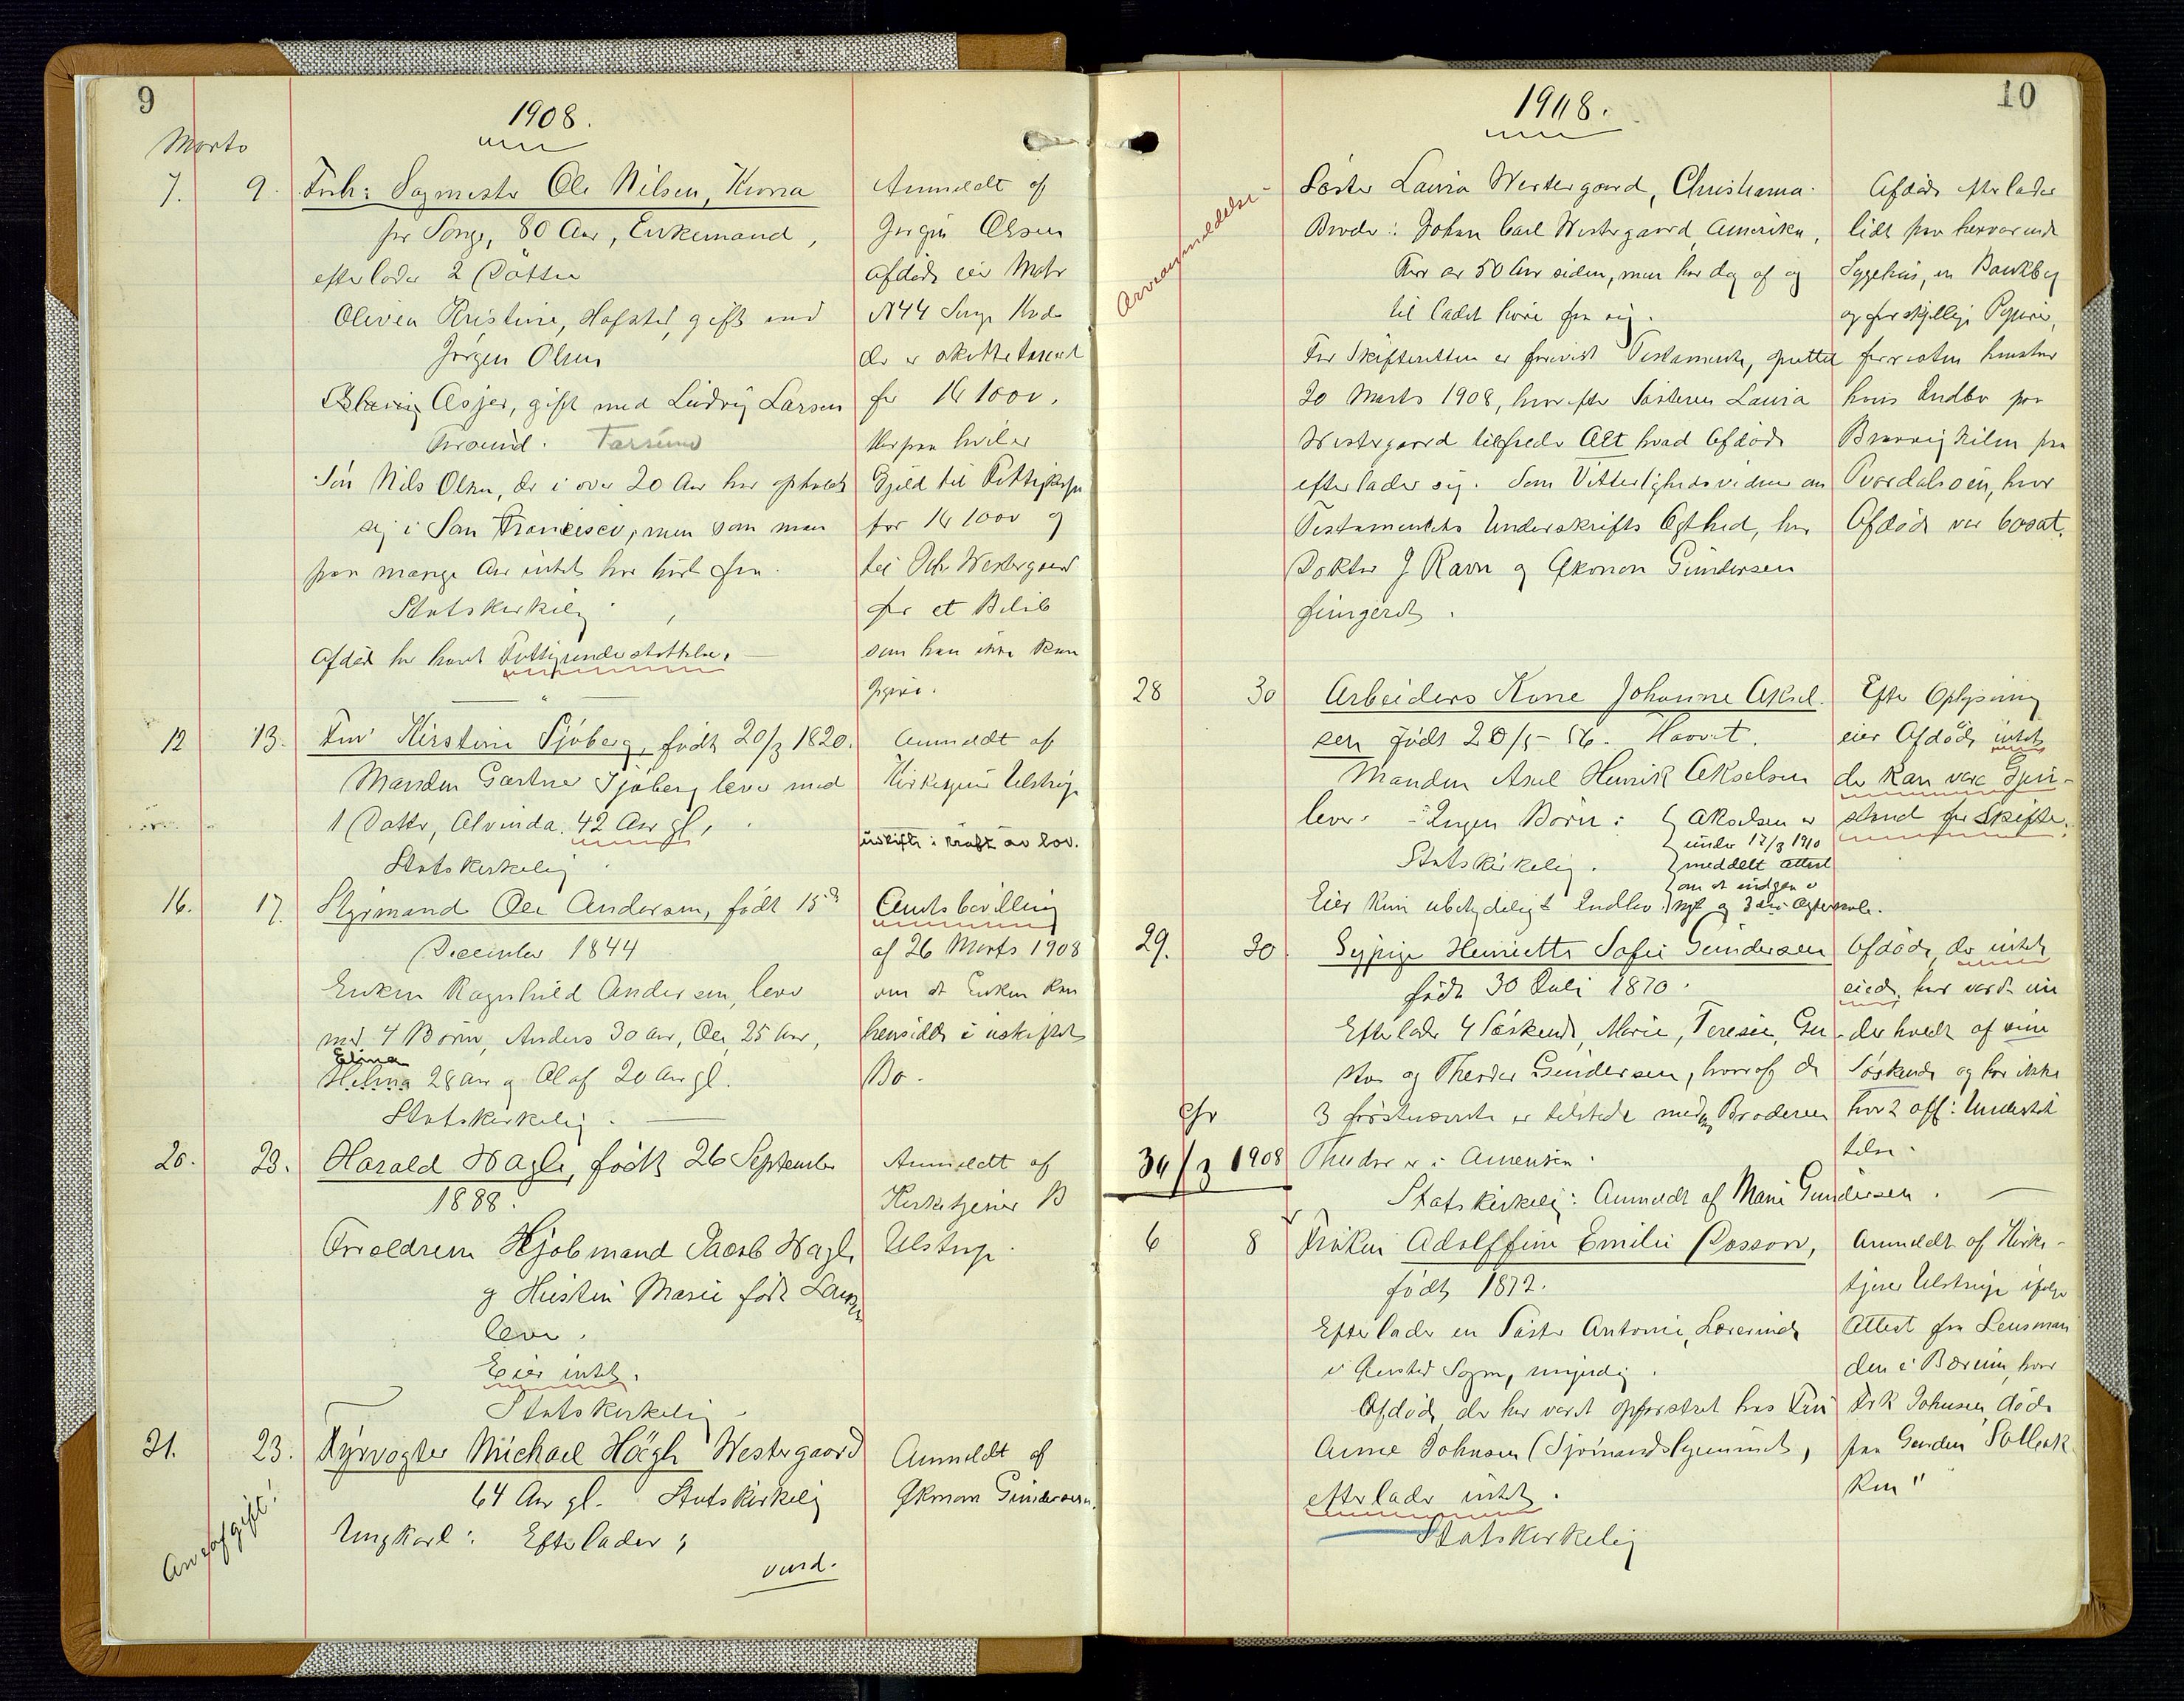 9
1908.
Marts
7. 9. Forh: Sagmester Ole Nilsen, Kirra
for Songe, 80 Aar, Enkemand,
efterlader 2 Døttre
Olivea Kristine, Hafsted, gift med
Jørgen Olsen
Asjer, gift med Ludvig Larsen
Tarsund
Søn Nils Olsen, der i over 20 Aar har opholdt
sig i San Francisco, men som man
paa mange Aar intet har hørt fra.
Statskirkelig
Afdøde har havt Fattigunderstøttelse.
Anmeldt af
Jørgen Olsen
Afdøde eier Matr
N 44 Songe
der er skattetaxeret
for Kr 1000.
Herpaa hviler
Gjeld til Fattigkassen
for Kr 1000 og
til Westergaard
for et Beløb
som han ikke kan
opgive.
12 13. Fru Kirstine Sjøberg, født 20/3 1820.
Manden Gartner Sjøberg lever med
1 Datter, Alvinda. 42 Aar gl.
Statskirkelig
Anmeldt af
Kirketjener Ulstrup
uskifte i kraft av lov.
16. 17. Styrmand Ole Andersen, født 15de
December 1844
Enken Ragnhild Andersen, lever
med 4 Børn, Anders 30 Aar, Ole 25 Aar,
Elina
Helina 28 Aar og Olaf 20 Aar gl.
Statskirkelig.
Amtsbevilling
af 26 Marts 1908
om at Enken kan
hensidde i uskiftet
Bo.
20. 23. Harald Hagli, født 26 September
1888.
Forældrene Kjøbmand Jacob Hagli
og Hustru Marie født Larsen
lever.
Eier intet.
Statskirkelig
Anmeldt af
Kirketjener B
Ulstrup.
21. 23. Fyrvogter Michael Høegh Westergaard
64 Aar gl. Statskirkelig
Ungkarl: Efterlader;
vend.
Arveafgift!
Anmeldt af
Økonom Gundersen.
10
1908.
Arveanmeldelse
Søster Laura Westergaard, Christiania.
Broder: Johan Carl Westergaard Amerika,
for 50 Aar siden, men har dog af og
til ladet høre fra sig.
For Skifteretten er forevist Testamente, oprettet
20 Marts 1908, hvorefter Søsteren Laura
Westergaard tilfreder Alt hvad Afdøde
efterlader sig. Som Vitterlighedsvidner om
Testamentets Underskrifts Ægthed, har
Doktor J Ravn og Økonom Gundersen
fungeret.
Afdøde efterlader
lidt paa herværende
Sygehus, en Bankbog
og forskjellige Papirer,
forresten henstaar
hans Indbo paa
Brevigkilen paa
Tverdalsøen, hvor
Afdøde var bosat.
28 30 Arbeiders Kone Johanne Aksel-
sen født 20/5 - 56. Havet.
Manden Axel Henrik Akselsen
lever. - Ingen Børn:
Statskirkelig.
Eier kun ubetydeligt Indbo.
Akselsen er
under 17/3 1910
meddelt attest
om at indgaa
nyt og 3die Ægteskab.
Efter Oplysning
eier Afdøde intet
der kan være Gjen-
stand for Skifte.
29. 30 Sypige Henriette Sofie Gundersen
født 30 Juli 1870.
Efterlader 4 Søskende, Marie, Teresie, Gu-
stav og Theodor Gundersen, hvoraf de
3 førstnævnte er tilstede medens Broderen
Theodor er i Amerika.
Statskirkelig: Anmeldt af Marie Gundersen.
Afdøde, der intet
eiede, har været un-
derholdt af sine
Søskende og har ikke
havt off: Understøt
telse.
31/3 1908
6 8 Frøken Adolffine Emilie Posson,
født 1872.
Efterlader en Søster Antonie, Lærerinde
i Gjerstad Sogn, myndig.
Afdøde, der har været opfostret hos Fru
Anne Johnsen (Sjømandsgemmet,
efterlader intet.
Statskirkelig
Anmeldt af Kirke-
tjener Ulstrup ifølge
Attest fra Lensman
den i Bærum, hvor
Frk Johnsen døde
paa Gaarden